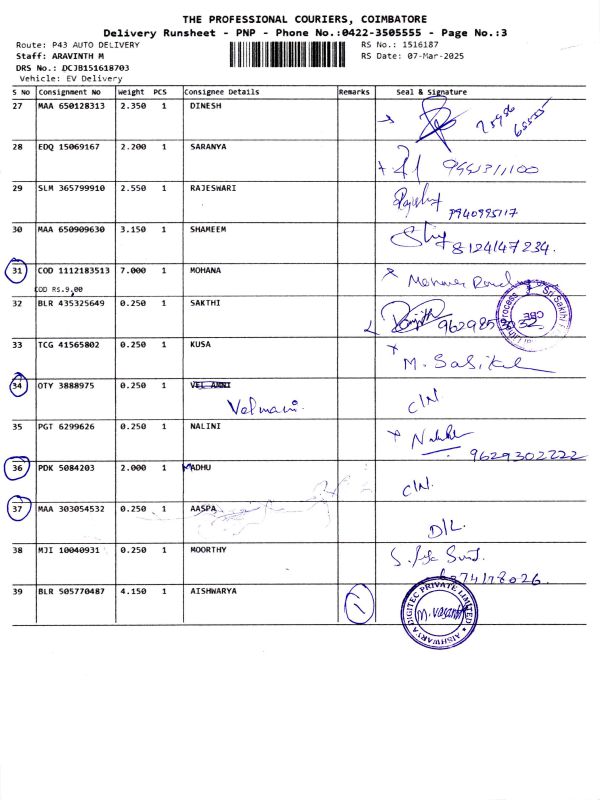 THE PROFESSIONAL COURIERS, COIMBATORE
Delivery Runsheet - PNP - Phone No.:0422-3505555 - Page No.:3
Route: P43 AUTO DELIVERY
RS No.: 1516187
Staff: ARAVINTH M
RS Date: 07-Mar-2025
DRS No.: DCJB151618703
Vehicle: EV Delivery
S No Consignment No Weight PCS Consignee Details Remarks Seal & Signature
27 MAA 650128313 2.350 1 DINESH
28 EDQ 15069167 2.200 1 SARANYA
29 SLM 365799910 2.550 1 RAJESWARI
7940995117
30 MAA 650909630 3.150 1 SHAMEEM
8124147234.
31 COD 1112183513 7.000 1 MOHANA
COD RS.9.00
32 BLR 435325649 0.250 1 SAKTHI
Sri Sakthi
CBE
33 TCG 41565802 0.250 1 KUSA
34 OTY 3888975 0.250 1 VEL AMNI
Velmani
C/N
35 PGT 6299626 0.250 1 NALINI
9629302222
36 PDK 5084203 2.000 1 MADHU
C/N.
37 MAA 303054532 0.250 1 AASPA
D/L.
38 MJI 10040931 0.250 1 MOORTHY
39 BLR 505770487 4.150 1 AISHWARYA
1
AISHWARYA DIGITEC PRIVATE LIMITED
M. Vasanth